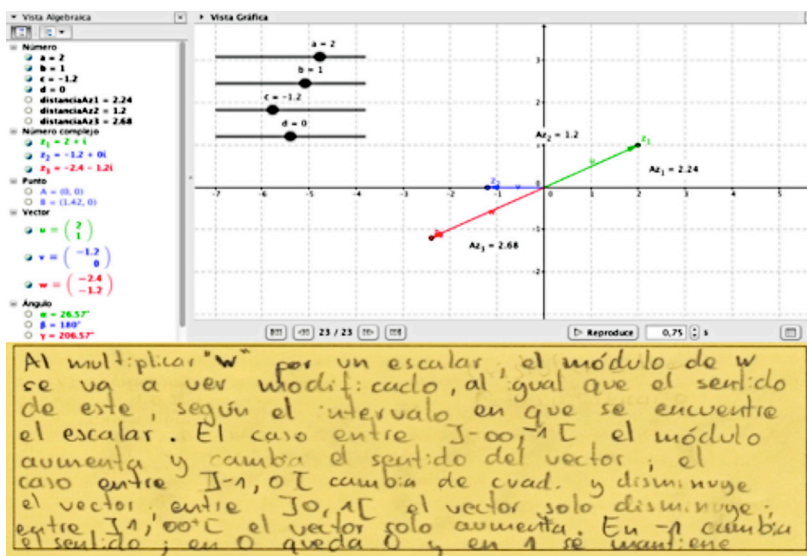 Vista Algebraica
Vista Gráfica
Número
a = 2
b = 1
c = -1.2
d = 0
distanciaAz1 = 2.24
distanciaAz2 = 1.2
distanciaAz3 = 2.68
Número complejo
z₁ = 2 + i
z₂ = -1.2 + 0i
z₃ = -2.4 - 1.2i
Punto
A = (0, 0)
B = (1.42, 0)
Vector
u = ( 2
1 )
v = ( -1.2
0 )
w = ( -2.4
-1.2 )
Ángulo
α = 26.57°
β = 180°
γ = 206.57°
a = 2
b = 1
c = -1.2
d = 0
3
2
1
Az₂ = 1.2
z₁
u
Az₁ = 2.24
z₂
v
-7 -6 -5 -4 -3 -2 -1 0 1 2 3 4 5
w
Az₃ = 2.68
-1
-2
23 / 23
Reproduce
0,75
s
Al multiplicar "w" por un escalar, el módulo de w
se va a ver modificado, al igual que el sentido
de este, según el intervalo en que se encuentre
el escalar. El caso entre ]-∞,-1[ el módulo
aumenta y cambia el sentido del vector; el
caso entre ]-1,0[ cambia de cuad. y disminuye
el vector; entre ]0,1[ el vector solo disminuye;
entre ]1,∞+[ el vector solo aumenta. En -1 cambia
el sentido; en 0 queda 0 y en 1 se mantiene